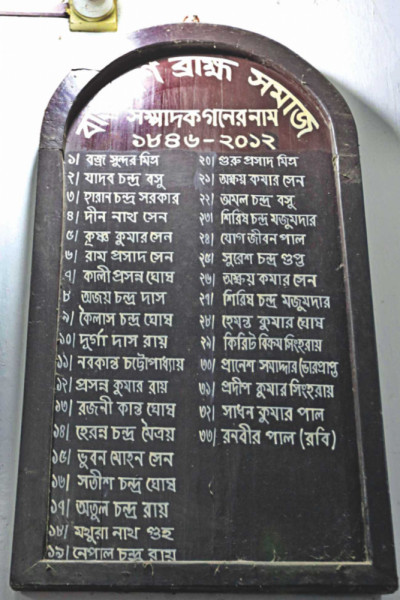 ব্রাহ্ম সমাজ
সম্পাদকগনের নাম
১৮৪৬-২০১২
১। ব্রজ সুন্দর মিত্র
২। যাদব চন্দ্র বসু
৩। হারান চন্দ্র সরকার
৪। দীন নাথ সেন
৫। কৃষ্ণ কুমার সেন
৬। রাম প্রসাদ সেন
৭। কালী প্রসন্ন ঘোষ
৮ অজয় চন্দ্র দাস
৯। কৈলাস চন্দ্র ঘোষ
১০। দুর্গা দাস রায়
১১। নবকান্ত চট্টোপাধ্যায়
১২। প্রসন্ন কুমার রায়
১৩। রজনী কান্ত ঘোষ
১৪। হেরন্ন চন্দ্র মৈত্রয়
১৫। ভুবন মোহন সেন
১৬। সতীশ চন্দ্র ঘোষ
১৭। অতুল চন্দ্র রায়
১৮। মথুরা নাথ গুহ
১৯। নেপাল চন্দ্র রায়
২০। গুরু প্রসাদ মিত্র
২১। অক্ষয় কুমার সেন
২২। অমল চন্দ্র বসু
২৩। শিরিষ চন্দ্র মজুমদার
২৪। যোগ জীবন পাল
২৫। সুরেশ চন্দ্র গুপ্ত
২৬। অক্ষয় কুমার সেন
২৭। শিরিষ চন্দ্র মজুমদার
২৮। হেমন্ত কুমার ঘোষ
২৯। কিরিট বিক্রম সিংহরায়
৩০। প্রানেশ সমাদ্দার (ভারপ্রাপ্ত
৩১। প্রদীপ কুমার সিংহরায়
৩২। সাধন কুমার পাল
৩৩। রনবীর পাল (রবি)